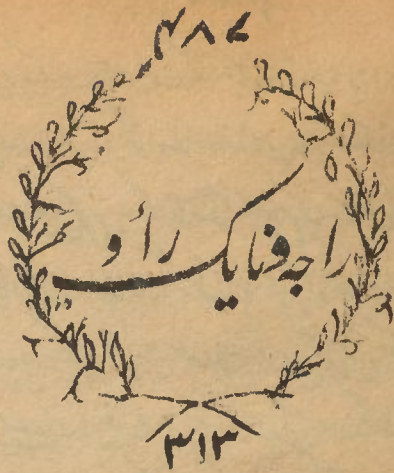 ۴۸۷
راجہ ونایک راؤ
۳۱۳